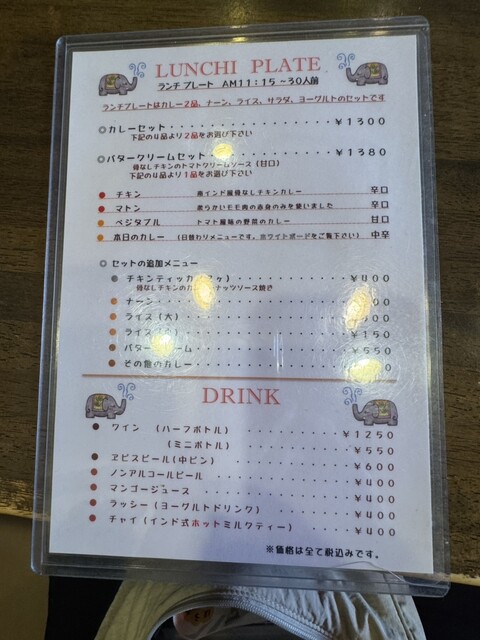 LUNCHI PLATE
ランチ プレート AM11:15 ~30人前
ランチプレートはカレー2品、ナーン、ライス、サラダ、ヨーグルトのセットです
◎カレーセット ¥1300
下記の4品より2品をお選び下さい
◎バタークリームセット ¥1380
骨なしチキンのトマトクリームソース (甘口)
下記の4品より1品をお選び下さい
● チキン 南インド風骨なしチキンカレー 辛口
● マトン 柔らかいモモ肉の赤身のみを使いました 辛口
● ベジタブル トマト風味の野菜のカレー 甘口
● 本日のカレー (日替わりメニューです。ホワイトボードをご覧下さい) 中辛
◎ セットの追加メニュー
● チキンティッカ ¥400
骨なしチキンの ナッツソース焼き
● ナーン
● ライス (大)
● ライス ¥150
● バター ーム ¥550
● その他のカレー
DRINK
● ワイン (ハーフボトル) ¥1250
(ミニボトル) ¥550
● ヱビスビール(中ビン) ¥600
● ノンアルコールビール ¥400
● マンゴージュース ¥400
● ラッシー (ヨーグルトドリンク) ¥400
● チャイ (インド式ホットミルクティー) ¥400
※価格は全て税込みです。